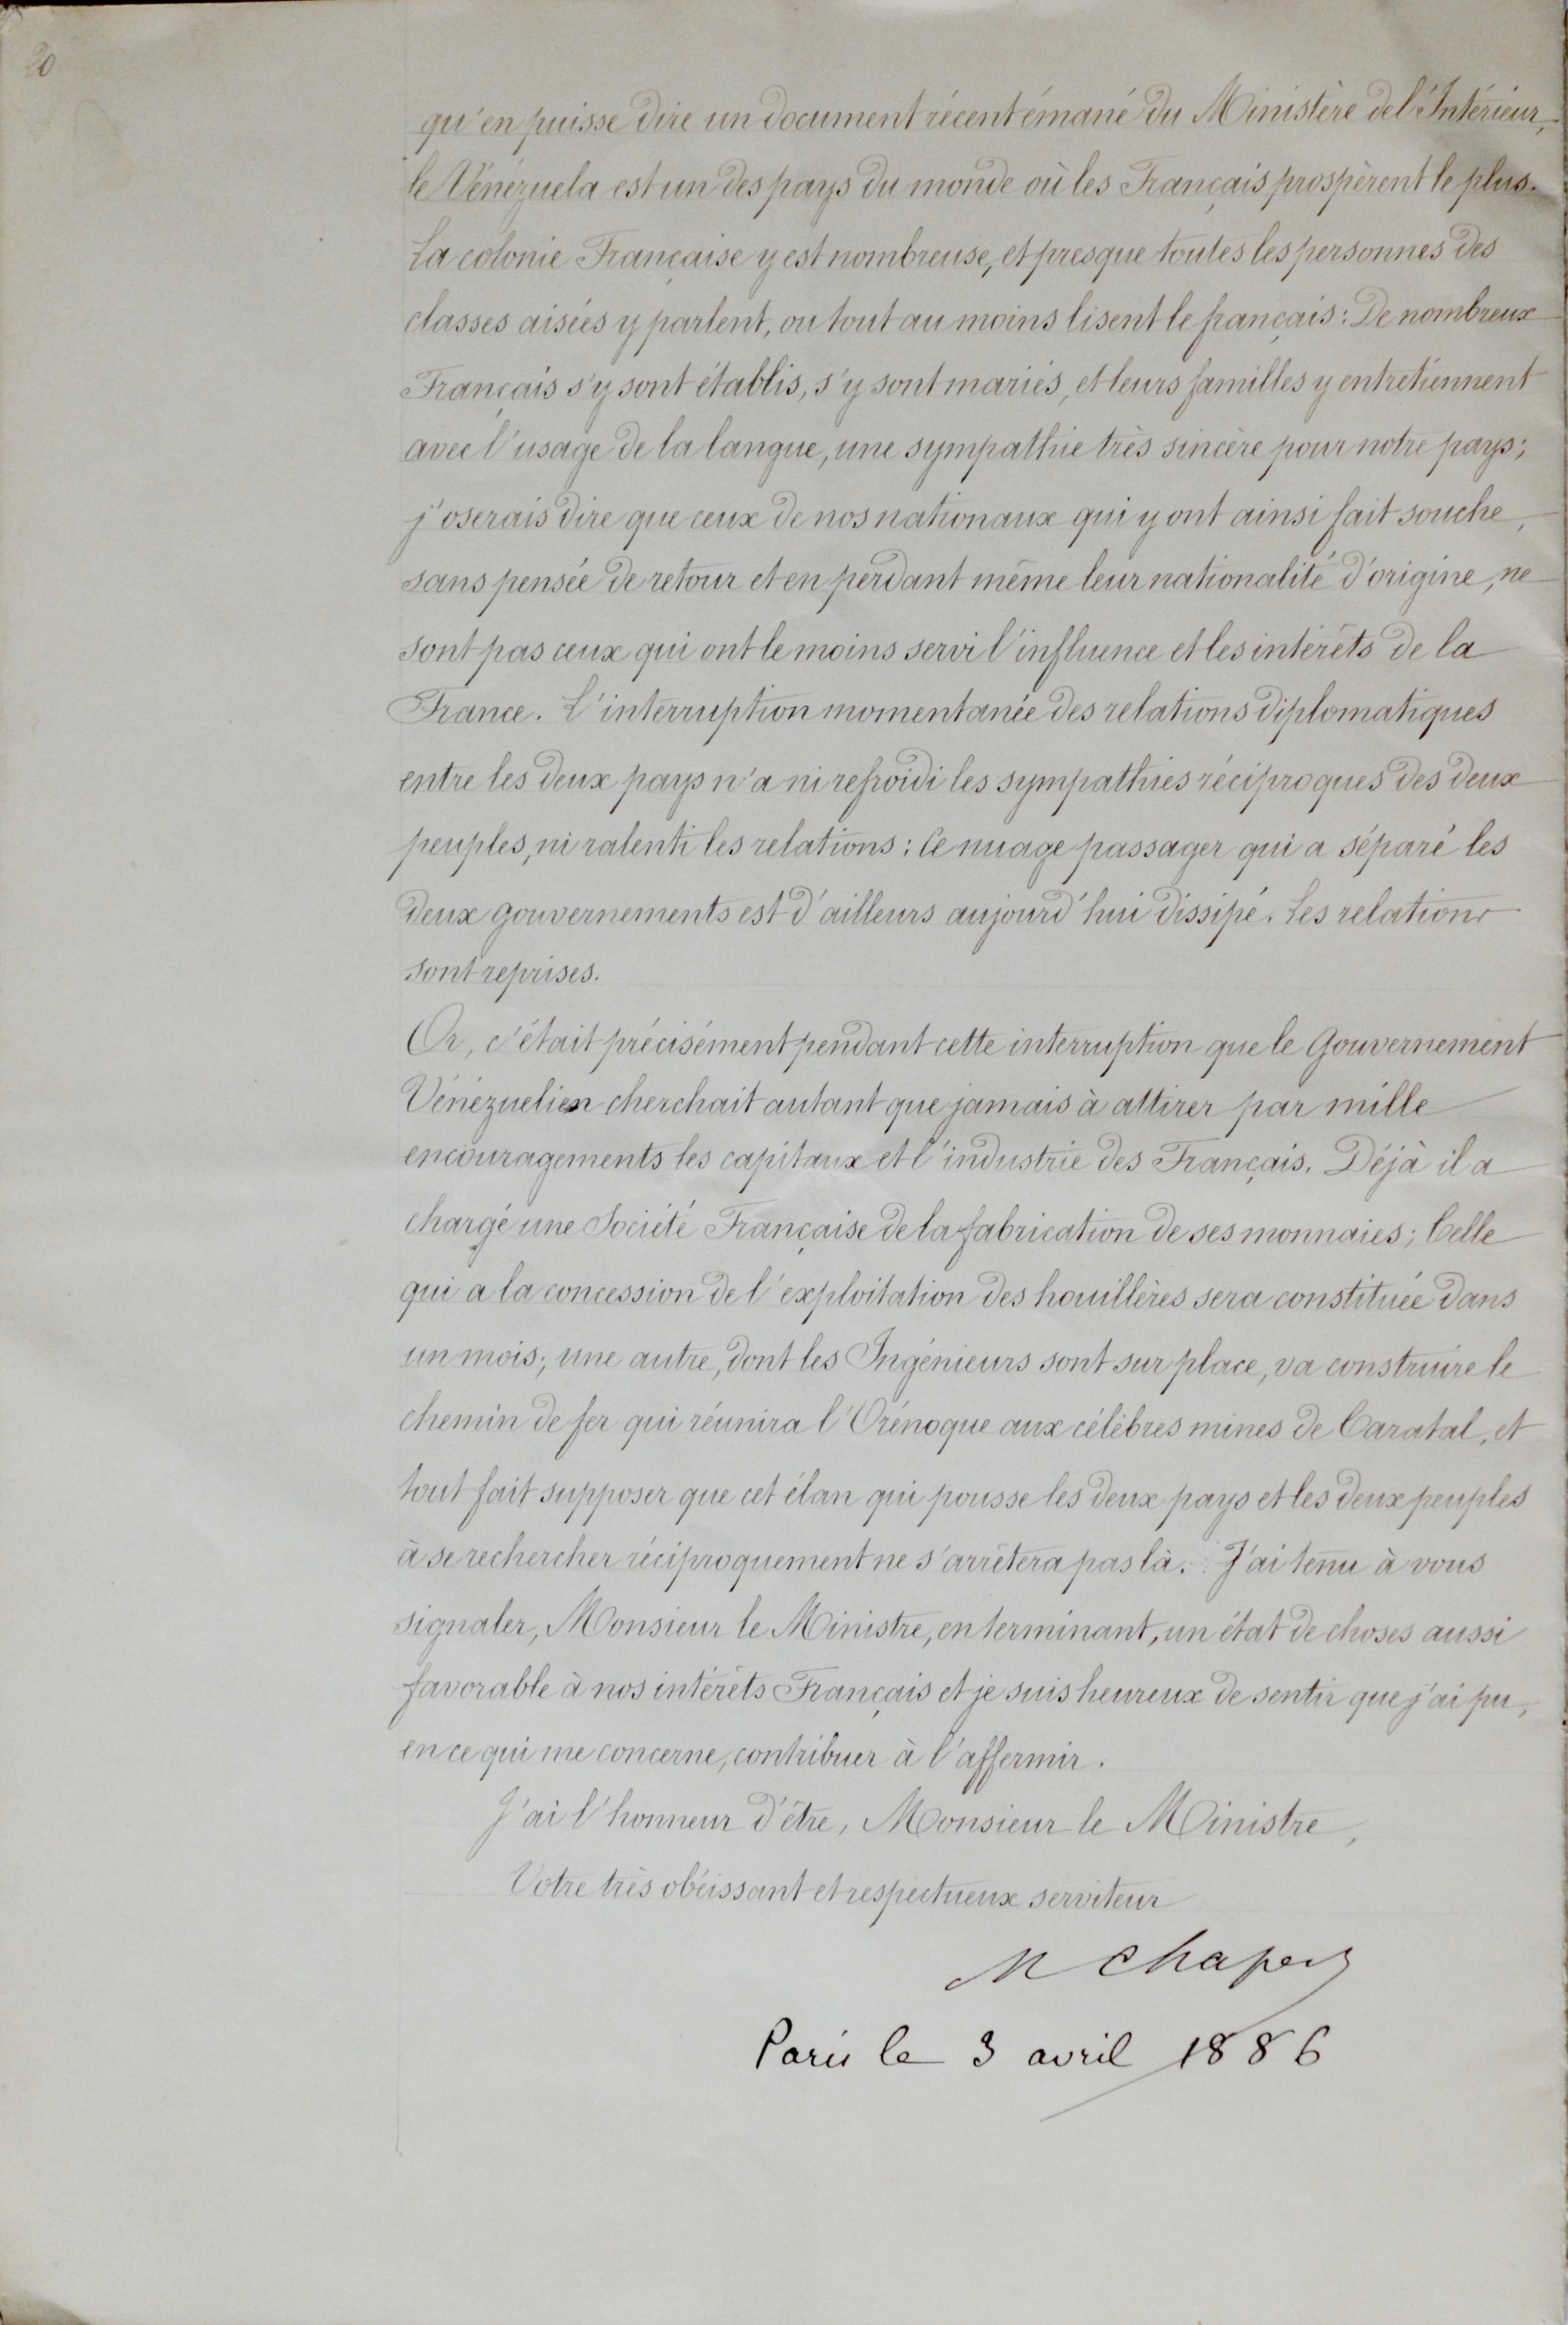 20
qu'en puisse dire un document récent émané du Ministère de l'Intérieur,
le Vénézuela est un des pays du monde où les Français prospèrent le plus.
La colonie Française y est nombreuse, et presque toutes les personnes des
classes aisées y parlent, ou tout au moins lisent le français : De nombreux
Français s'y sont établis, s'y sont mariés, et leurs familles y entretiennent
avec l'usage de la langue, une sympathie très sincère pour notre pays ;
j'oserais dire que ceux de nos nationaux qui y ont ainsi fait souche,
sans pensée de retour et en perdant même leur nationalité d'origine, ne
sont pas ceux qui ont le moins servi l'influence et les intérêts de la
France. L'interruption momentanée des relations diplomatiques
entre les deux pays n'a ni refroidi les sympathies réciproques des deux
peuples, ni ralenti les relations : Ce nuage passager qui a séparé les
deux gouvernements est d'ailleurs aujourd'hui dissipé. Les relations
sont reprises.
Or, c'était précisément pendant cette interruption que le Gouvernement
Vénézuelien cherchait autant que jamais à attirer par mille
encouragements les capitaux et l'industrie des Français. Déjà il a
chargé une Société Française de la fabrication de ses monnaies ; Celle
qui a la concession de l'exploitation des houillères sera constituée dans
un mois ; une autre, dont les Ingénieurs sont sur place, va construire le
chemin de fer qui réunira l'Orénoque aux célèbres mines de Caratal, et
tout fait supposer que cet élan qui pousse les deux pays et les deux peuples
à se rechercher réciproquement ne s'arrêtera pas là. J'ai tenu à vous
signaler, Monsieur le Ministre, en terminant, un état de choses aussi
favorable à nos intérêts Français et je suis heureux de sentir que j'ai pu,
en ce qui me concerne, contribuer à l'affermir.
J'ai l'honneur d'être, Monsieur le Ministre,
Votre très obéissant et respectueux serviteur
M Chaper
Paris le 3 avril 1886